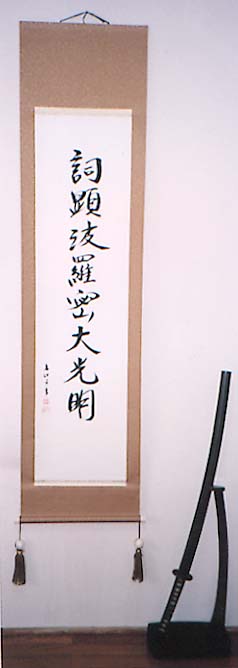 詞顕波羅密大光明